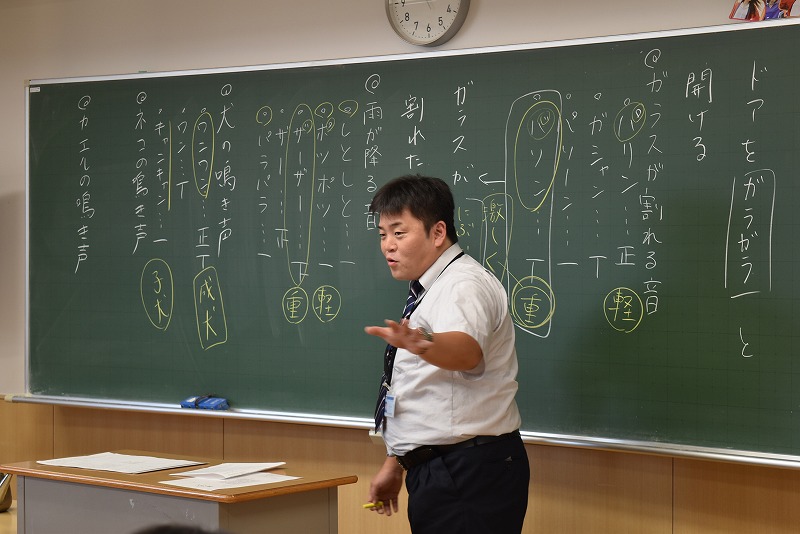 ドアをガラガラーと
開ける
◎ガラスが割れる音
・パリン…正
・ガシャン…T
・パリーン…一
・バリン…T
軽
重
激しく
ガラスが
割れた
◎雨が降る音
・しとしと…一
・ポツポツ…一
・ザーザー…T
・ザー…正
・パラパラ…一
軽
重
◎犬の鳴き声
・ワンワン…正T
・ワン…T
・キャンキャン…一
成犬
子犬
◎ネコの鳴き声
◎カエルの鳴き声